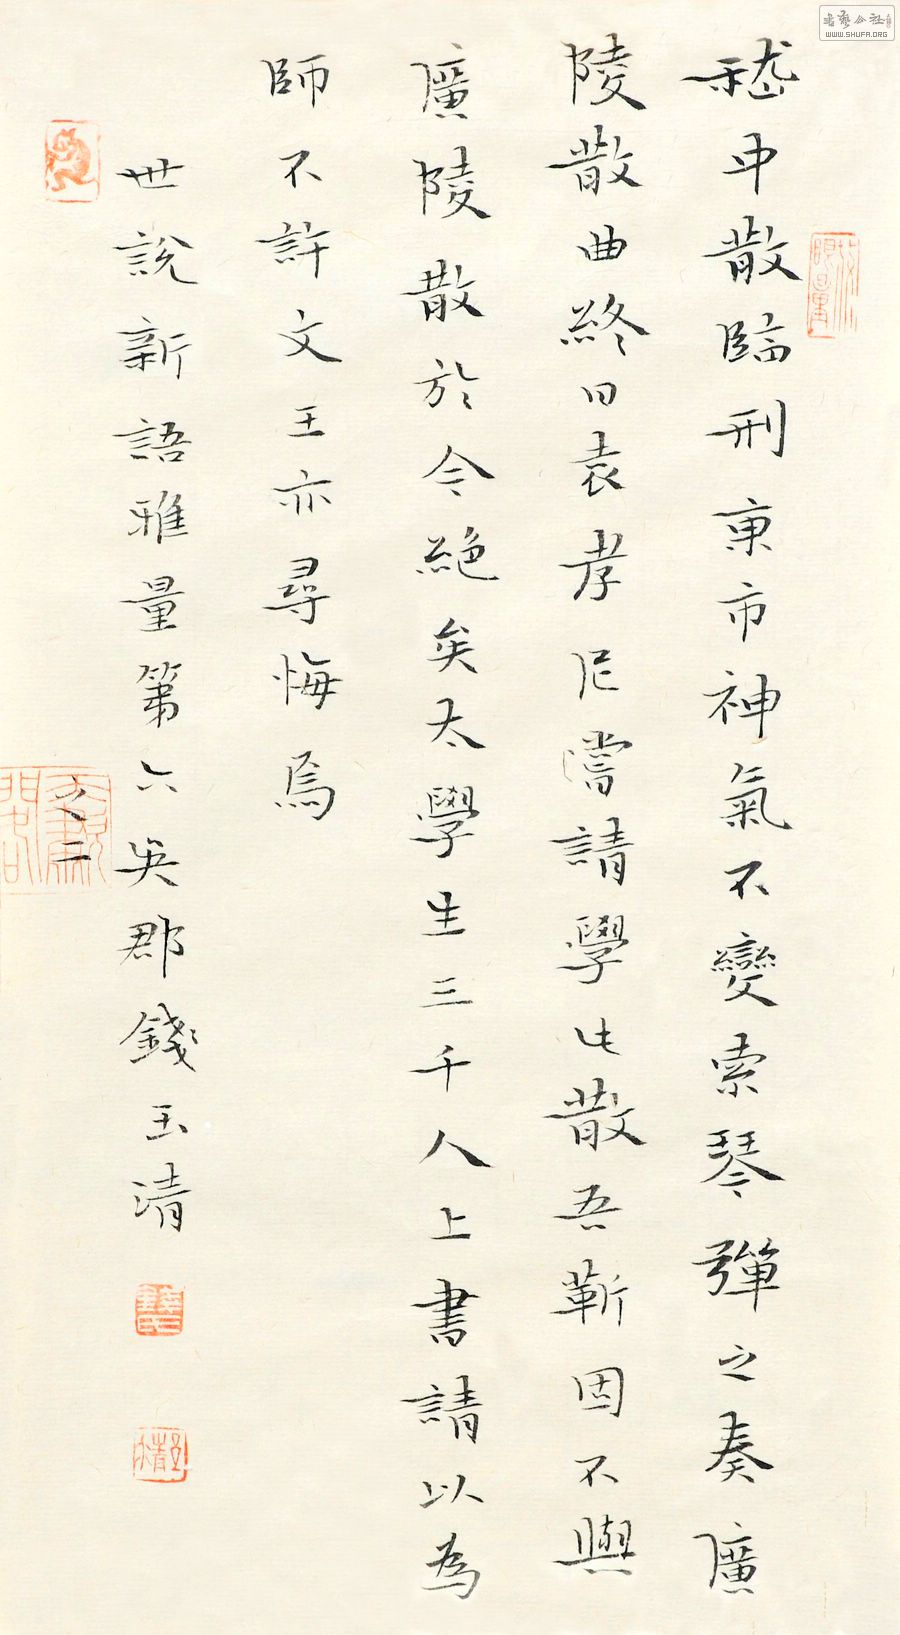 嵇中散臨刑東市神氣不變索琴彈之奏廣
陵散曲終曰袁孝尼嘗請學此散吾靳固不與
廣陵散於今絕矣太學生三千人上書請以為
師不許文王亦尋悔焉
世說新語雅量第六吳郡錢玉清
之二
WWW.SHUFA.ORG